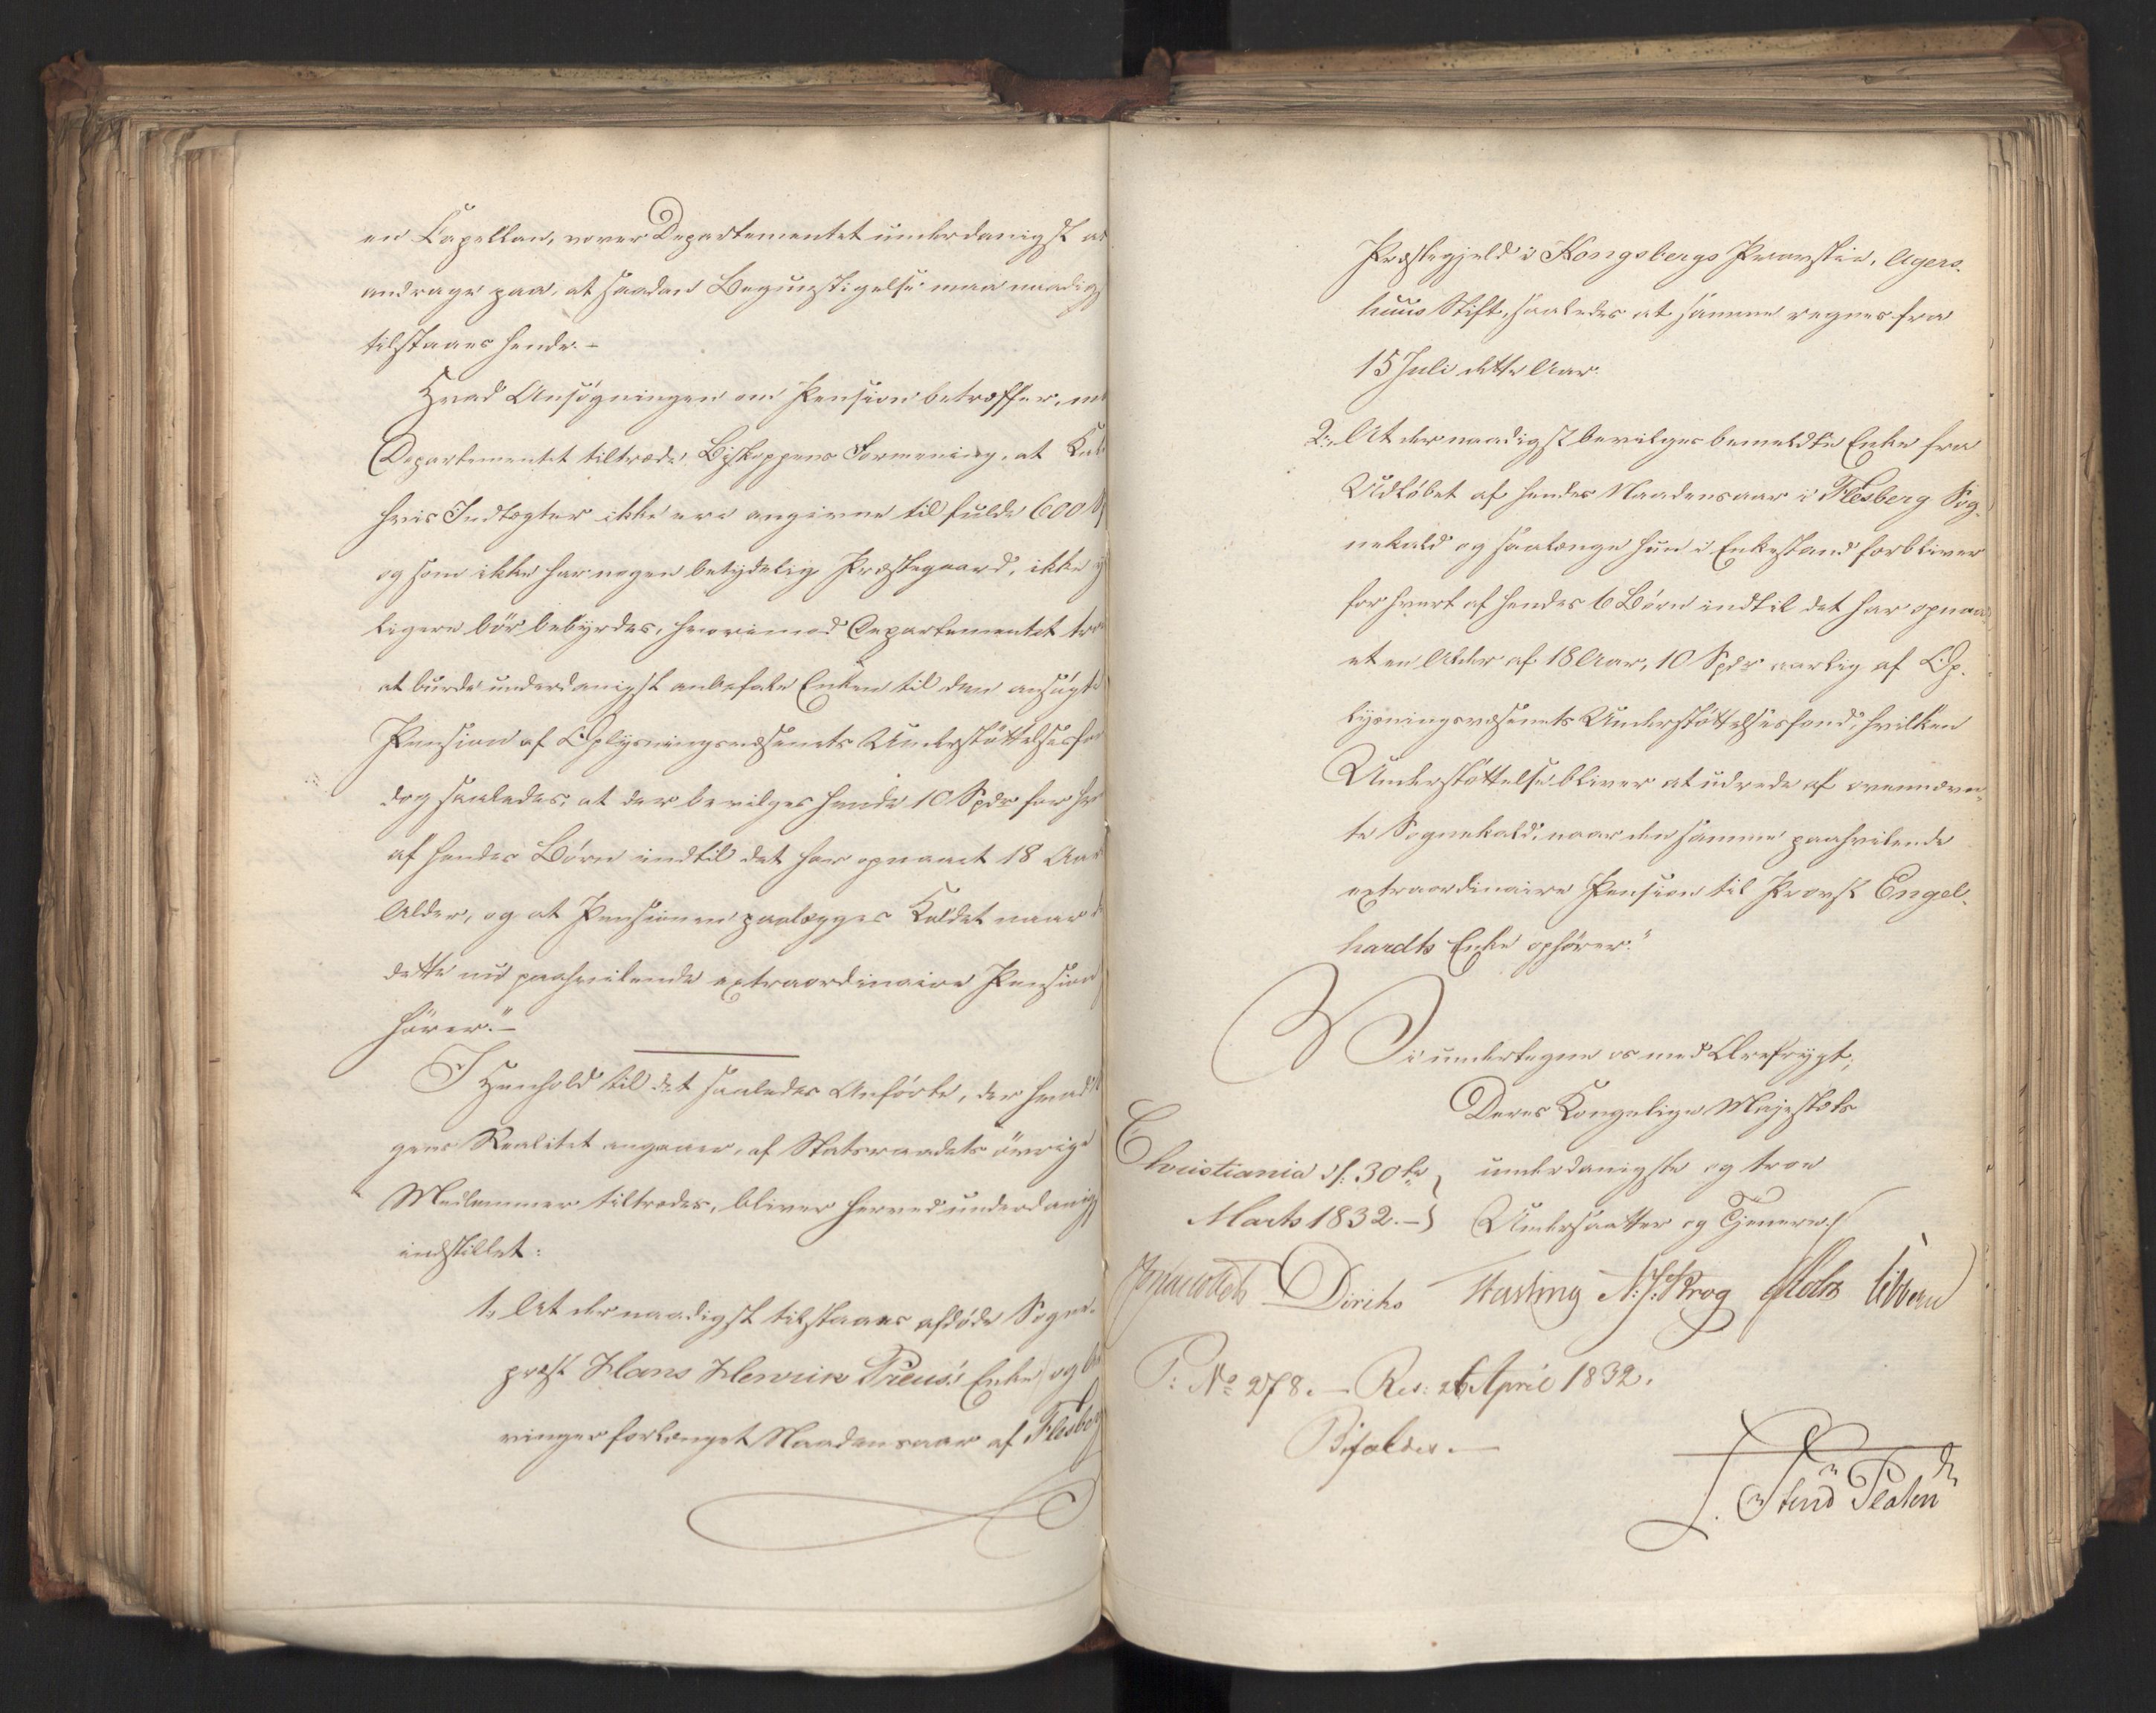 en Capellan, vover Departementet underdanigst at
andrage paa, at saadan Begunstigelse maa naadigst
tilstaaes hende.-
Hvad Ansøgningen om Pension betræffer, maa
Departementet tiltræde Biskoppens Formening, at Kald
hvis Indtægter ikke ere angivne til fulde 600
og som ikke har nogen betydelig Præstegaard, ikke
ligere bør bebyrdes, hvorimod Departementet troer
at burde underdanigst anbefale Enken til den ansøgte
Pension af Oplysningsvæsenets Understøttelsesfond
dog saaledes, at der bevilges hende 10 Spdr for hv
af hendes Børn indtil det har opnaaet 18 Aars
Alder, og at Pensionen paalægges Kaldet naar
dette nu paahvilende extraordinaire Pension
hører."-
I Henhold til det saaledes Anførte, der hvad
gens Realitet angaaer, af Statsraadets øvrige
Medlemmer tiltrædes, bliver herved underdanigst
indstillet:
1, At der naadigst tilstaaes afdøde Sogne-
præst Hans Henrik Preus's Enke og
vinger forlænget Naadensaar af Flesberg
Præstegjeld i Kongsbergs Provstie, Agers-
huus Stift, saaledes at samme regnes fra
15 Juli dette Aar.
2, At der naadigst bevilges bemeldte Enke fra
Udløbet af hendes Naadensaar i Flesberg Sog-
nekald og saalænge hun i Enkestand forbliver
for hvert af hendes 6 Børn indtil det har opnaa-
et en Alder af 18 Aar, 10 Spdr aarlig af Op-
lysningsvæsenets Understøttelsesfond, hvilken
Understøttelse bliver at udrede af ovennævn-
te Sognekald, naar den samme paahvilende
extraordinaire Pension til Provst Engel-
hardts Enke ophører."
Vi undertegne os med Ærefrygt,
Deres Kongelige Majestæts
Christiania d: 30te underdanigste og troe
Marts 1832.- Undersaatter og Tjenere.
Diriks Fasting N. J. Krog
P: No 278. - Res: 26 April 1832.
Bifaldes.-